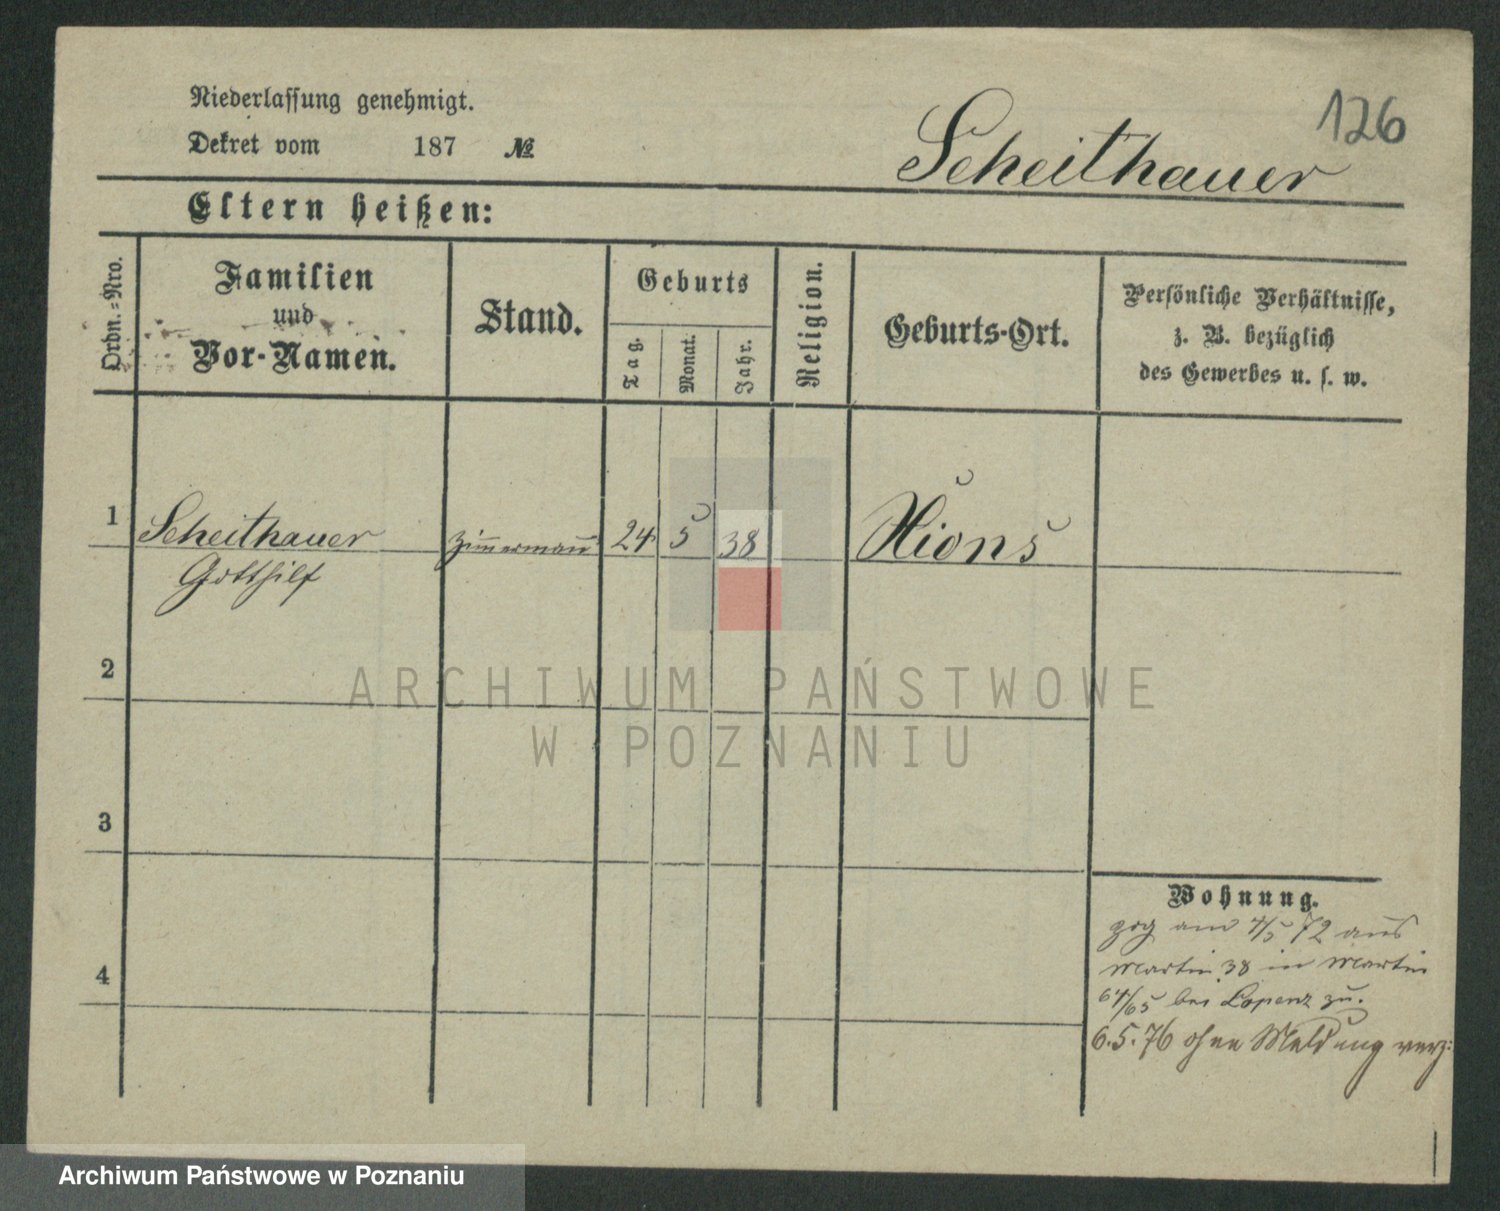 126
Niederlassung genehmigt.
Dekret vom 187 №
Scheithauer
Eltern heißen:
Ordn.-Nro.
Familien
und
Vor-Namen.
Stand.
Geburts
Tag.
Monat.
Jahr.
Religion.
Geburts-Ort.
Persönliche Verhältnisse,
z. B. bezüglich
des Gewerbes u. s. w.
1
Scheithauer
Gotthilf
Zim̄ermañ
24
5
38
Xions
2
3
4
Wohnung.
zog am 4/5 72 aus
Martin 38 in Martin
64/65 bei zu.
6.5.76 ohne Meldung verz:
ARCHIWUM PAŃSTWOWE
W POZNANIU
Archiwum Państwowe w Poznaniu